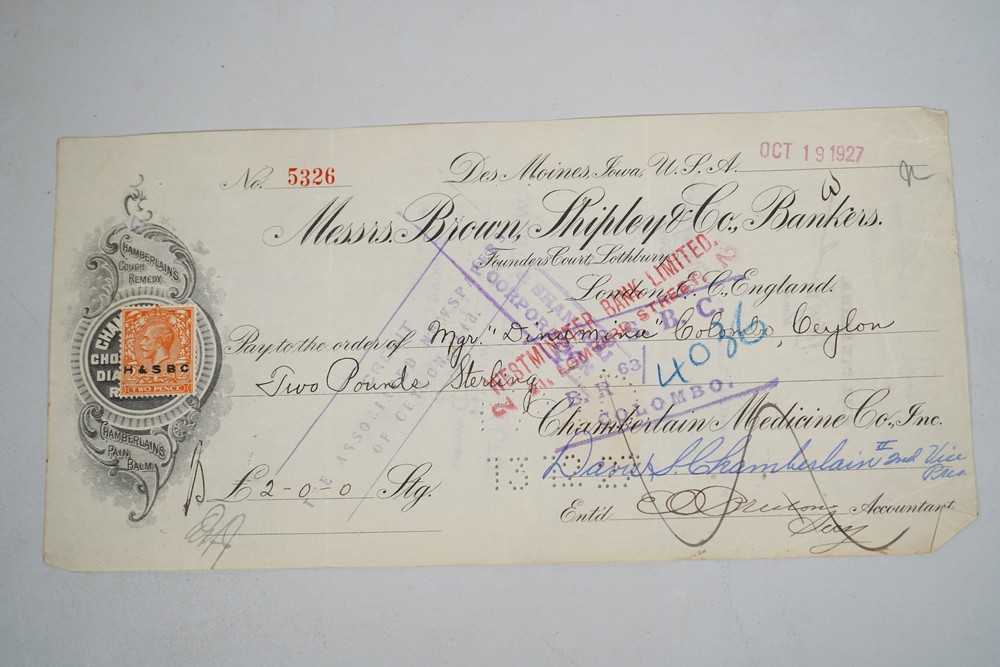 No. 5326
Des Moines, Iowa, U.S.A. OCT 19 1927
Messrs. Brown, Shipley & Co., Bankers.
Founders Court, Lothbury,
London, E.C., England.
Pay to the order of Mgr. "Dinamina" Colombo, Ceylon
Two Pounds Sterling
Chamberlain Medicine Co., Inc.
Davis S. Chamberlain II 2nd Vice Pres
£2-0-0 Stg.
Ent'd Accountant
Secy
CHAMBERLAIN'S
COUGH
REMEDY
CHA
CHO
DIA
R
H & S B C
TWO PENCE
CHAMBERLAIN'S
PAIN
BALM
WESTMINSTER BANK LIMITED.
STREET,
CORPOR
SHAN
B. C.
63
COLOMBO.
4036
THE ASSOCIATED NEWSPAPERS
OF CEYLON Ltd.
13 12 27